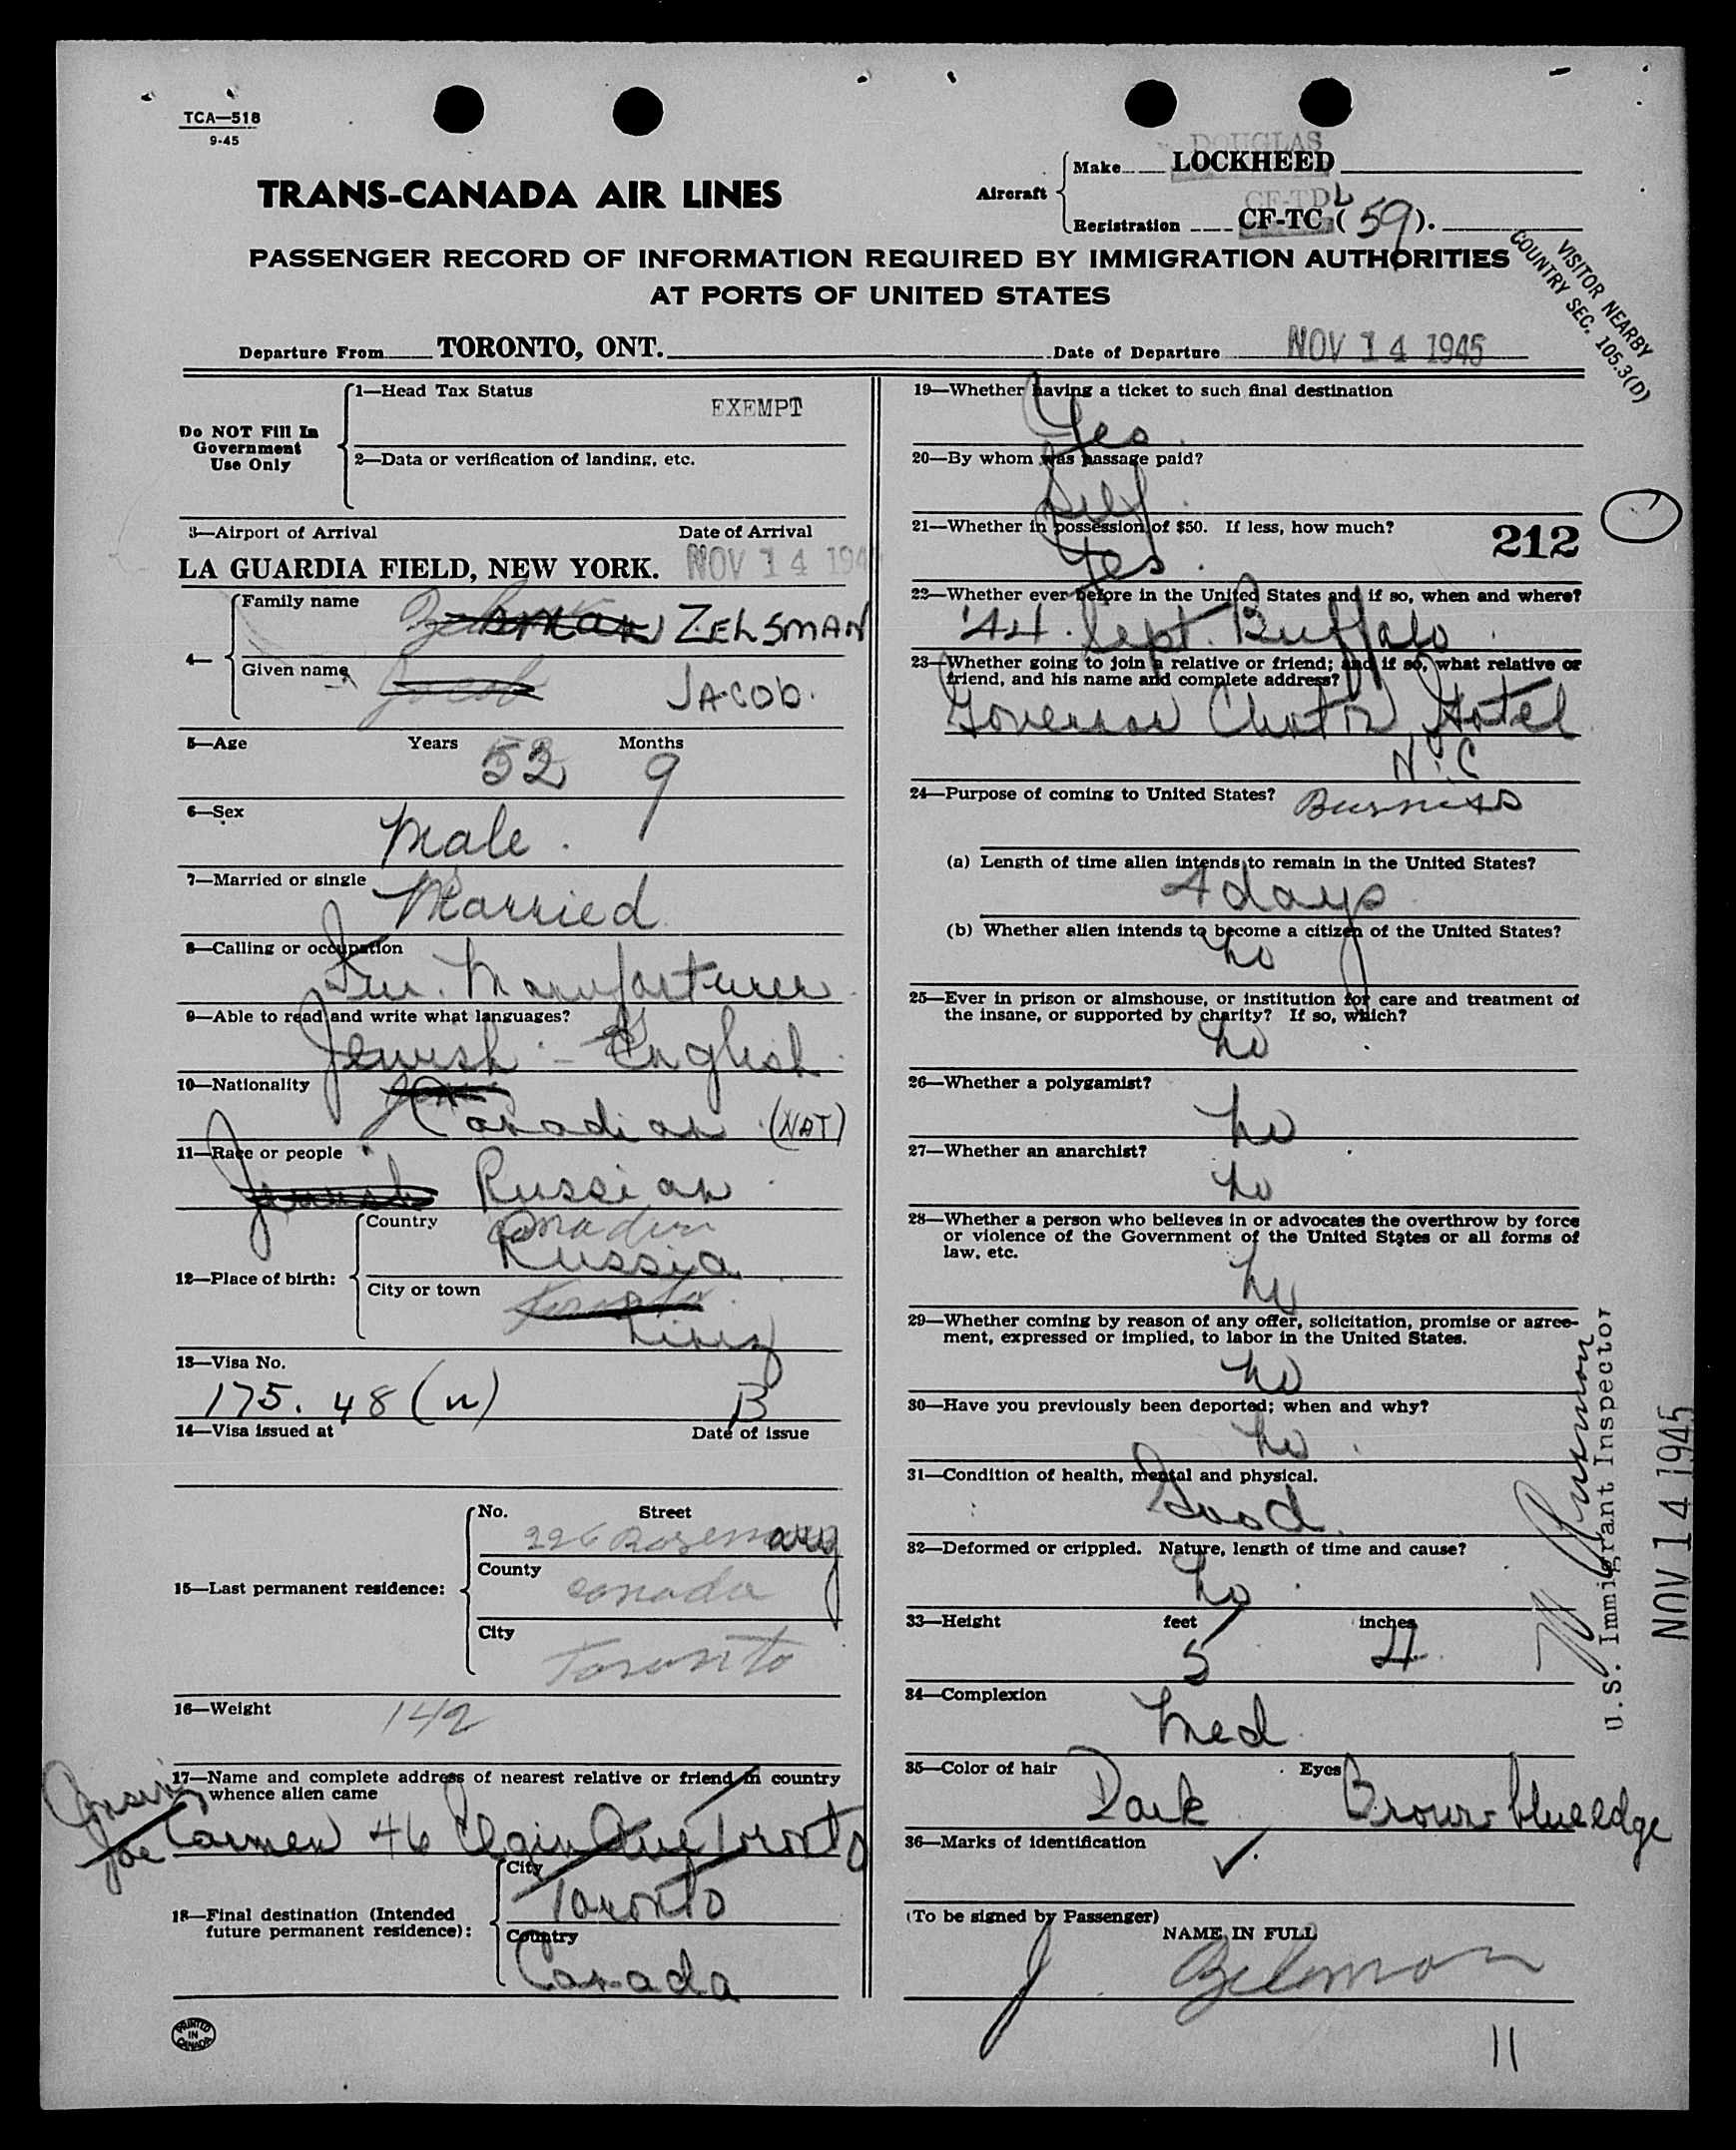 TCA—518
9-45
TRANS-CANADA AIR LINES
DOUGLAS
Aircraft
Make LOCKHEED
CF-TDL
Registration CF-TC (59).
PASSENGER RECORD OF INFORMATION REQUIRED BY IMMIGRATION AUTHORITIES
AT PORTS OF UNITED STATES
VISITOR NEARBY
COUNTRY SEC. 105.3(D)
Departure From TORONTO, ONT. Date of Departure NOV 14 1945
Do NOT Fill In
Government
Use Only
1—Head Tax Status
EXEMPT
2—Data or verification of landing, etc.
3—Airport of Arrival Date of Arrival
LA GUARDIA FIELD, NEW YORK. NOV 14 194
4—
Family name
ZELSMAN
Given name
Jacob JACOB.
5—Age Years 52 Months 9
6—Sex
Male.
7—Married or single
Married
8—Calling or occupation
Fur. Manufacturer
9—Able to read and write what languages?
Jewish - English
10—Nationality
Canadian (NAT)
11—Race or people
Jewish Russian
12—Place of birth:
Country
Canadian
Russia
City or town
Toronto
13—Visa No.
175. 48 (n) B
14—Visa issued at Date of issue
15—Last permanent residence:
No. Street
226 Rosemary
County
Canada
City
Toronto
16—Weight
142
17—Name and complete address of nearest relative or friend in country
whence alien came
Cousin
Joe Carmen 46 Elgin Ave Toronto
18—Final destination (Intended
future permanent residence):
City
Toronto
Country
Canada
PRINTED
IN
CANADA
19—Whether having a ticket to such final destination
Yes.
20—By whom was passage paid?
Self.
21—Whether in possession of $50. If less, how much?
212
Yes.
22—Whether ever before in the United States and if so, when and where?
'44. Sept. Buffalo.
23—Whether going to join a relative or friend; and if so, what relative or
friend, and his name and complete address?
Governor Clinton Hotel
N.Y.C
24—Purpose of coming to United States? Business
(a) Length of time alien intends to remain in the United States?
4 days
(b) Whether alien intends to become a citizen of the United States?
no
25—Ever in prison or almshouse, or institution for care and treatment of
the insane, or supported by charity? If so, which?
no
26—Whether a polygamist?
no
27—Whether an anarchist?
no
28—Whether a person who believes in or advocates the overthrow by force
or violence of the Government of the United States or all forms of
law, etc.
no
29—Whether coming by reason of any offer, solicitation, promise or agree-
ment, expressed or implied, to labor in the United States.
no
30—Have you previously been deported; when and why?
no.
31—Condition of health, mental and physical.
Good.
32—Deformed or crippled. Nature, length of time and cause?
no.
33—Height feet inches
5 4
34—Complexion
Med
35—Color of hair Eyes
Dark Brown-blue edge
36—Marks of identification
✓.
U.S. Immigrant Inspector
NOV 14 1945
(To be signed by Passenger)
NAME IN FULL
J Zelsman
11